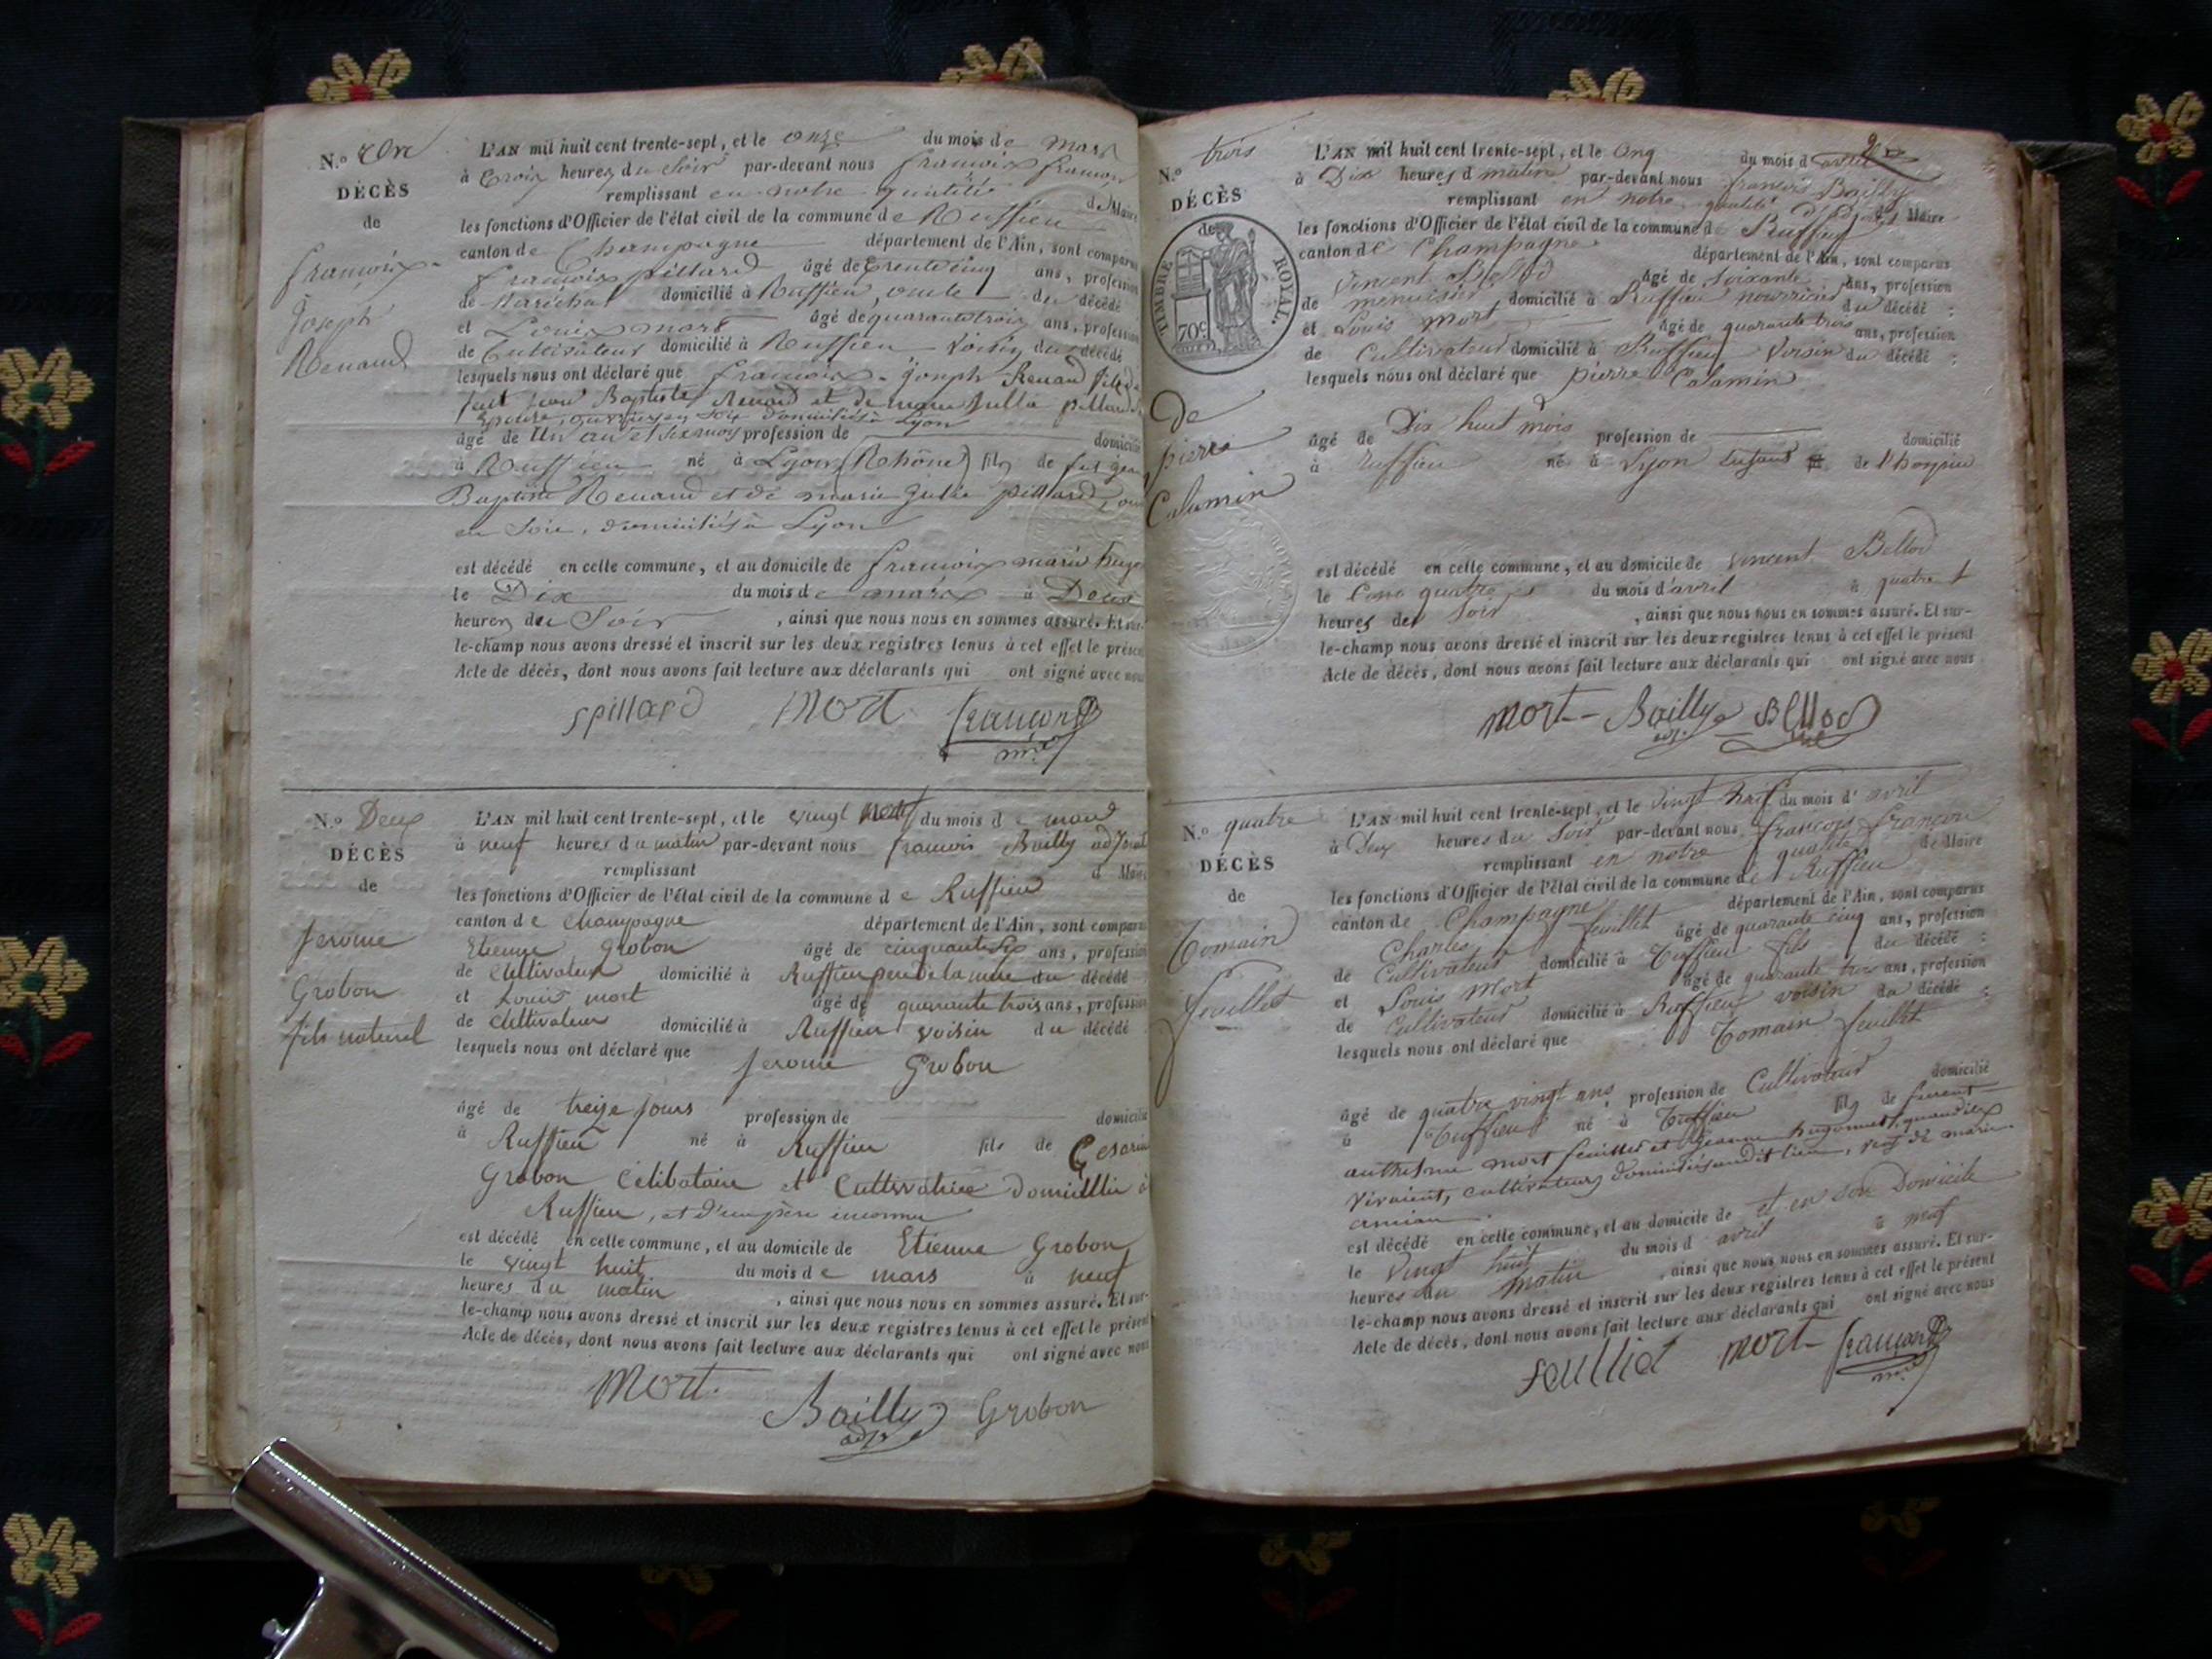 N.o
DÉCÈS
de
françois
Joseph
Renaud
L'AN mil huit cent trente-sept, et le onze du mois de mars
à trois heures du soir par-devant nous françois françon
remplissant en notre qualité de Maire
les fonctions d'Officier de l'état civil de la commune de Ruffieu
canton de Champagne département de l'Ain, sont comparus
françois pillard âgé de trente cinq ans, profession
de Maréchal domicilié à Ruffieu, oncle du décédé
et Louis mort âgé de quarante trois ans, profession
de Cultivateur domicilié à Ruffieu voisin du décédé
lesquels nous ont déclaré que françois-joseph Renaud fils de
feut jean Baptiste Renaud et de marie jullie pillard
domiciliés à Lyon
âgé de un an et six mois profession de domicilié
à Ruffieu né à Lyon (Rhône) fils de fut jean
Baptiste Renaud et de marie julie pillard
en Soie, domiciliés à Lyon
est décédé en celle commune, et au domicile de françois marie
le Dix du mois de mars à Deux
heures du Soir, ainsi que nous nous en sommes assuré. Et sur-
le-champ nous avons dressé et inscrit sur les deux registres tenus à cet effet le présent
Acte de décès, dont nous avons fait lecture aux déclarants qui ont signé avec nous
pillard mort françon
N.o Deux
DÉCÈS
de
Jerome
Grobon
fils naturel
L'AN mil huit cent trente-sept, et le vingt neuf du mois de mars
à neuf heures du matin par-devant nous francois Bailly adjoint
remplissant d Maire
les fonctions d'Officier de l'état civil de la commune de Ruffieu
canton de Champagne département de l'Ain, sont comparus
Etienne Grobon âgé de cinquante six ans, profession
de Cultivateur domicilié à Ruffieu pere de la mere du décédé
et Louis mort âgé de quarante trois ans, profession
de Cultivateur domicilié à Ruffieu voisin du décédé
lesquels nous ont déclaré que Jerome Grobon
âgé de treize jours profession de domicilié
à Ruffieu né à Ruffieu fils de Cesarine
Grobon Célibataire et Cultivatrice domicillié à
Ruffieu, et d'un père inconnu
est décédé en celle commune, et au domicile de Etienne Grobon
le vingt huit du mois de mars à neuf
heures du matin, ainsi que nous nous en sommes assuré. Et sur-
le-champ nous avons dressé et inscrit sur les deux registres tenus à cet effet le présent
Acte de décès, dont nous avons fait lecture aux déclarants qui ont signé avec nous
Mort Bailly adj. Grobon
N.o trois
DÉCÈS
de
TIMBRE ROYAL.
70c
De
pierre
Calamin
2
L'AN mil huit cent trente-sept, et le cinq du mois d avril
à Dix heures d matin par-devant nous francois Bailly
remplissant en notre qualité d'adjoint Maire
les fonctions d'Officier de l'état civil de la commune de Ruffieu
canton de Champagne département de l'Ain, sont comparus
Vincent Bellod âgé de soixante ans, profession
de menuisier domicilié à Ruffieu nourricier du décédé ;
et Louis Mort âgé de quarante trois ans, profession
de Cultivateur domicilié à Ruffieu Voisin du décédé ;
lesquels nous ont déclaré que pierre Calamin
âgé de Dix huit mois profession de domicilié
à ruffieu né à Lyon Enfant de l'hospice
est décédé en celle commune, et au domicile de Vincent Bellod
le quatre du mois d'avril à quatre
heures du Soir, ainsi que nous nous en sommes assuré. Et sur-
le-champ nous avons dressé et inscrit sur les deux registres tenus à cet effet le présent
Acte de décès, dont nous avons fait lecture aux déclarants qui ont signé avec nous
mort Bailly adj. Bellod
N.o quatre
DÉCÈS
de
Tomain
feuillet
L'AN mil huit cent trente-sept, et le vingt huit du mois d' avril
à Deux heures du Soir par-devant nous francois françon
remplissant en notre qualité de Maire
les fonctions d'Officier de l'état civil de la commune de Ruffieu
canton de Champagne département de l'Ain, sont comparus
Charles feuillet âgé de quarante cinq ans, profession
de Cultivateur domicilié à Ruffieu fils du décédé ;
et Louis Mort âgé de quarante trois ans, profession
de Cultivateur domicilié à Ruffieu voisin du décédé ;
lesquels nous ont déclaré que Tomain feuillet
âgé de quatre vingt ans profession de Cultivateur domicilié
à Ruffieu né à Ruffieu fils de furent
anthelme mort feuillet et jeanne hugonnet, quand ils
vivaient, cultivateurs domiciliés audit lieu, veuf de marie
est décédé en celle commune, et au domicile de et en son Domicile
le Vingt huit du mois d avril à neuf
heures du matin, ainsi que nous nous en sommes assuré. Et sur-
le-champ nous avons dressé et inscrit sur les deux registres tenus à cet effet le présent
Acte de décès, dont nous avons fait lecture aux déclarants qui ont signé avec nous
feulliet mort françon